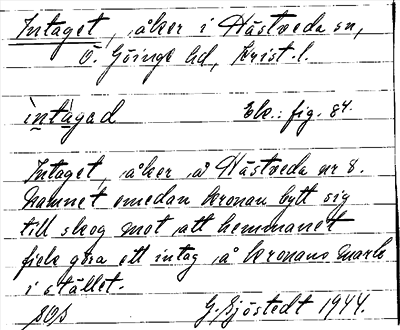 Intaget, åker i Hästveda sn,
Ö. Göinge hd, Krist. l.
intagad Ek.: fig. 84.
Intaget, åker å Hästveda nr 8.
Namnet emedan kronan bytt sig
till skog mot att hemmanet
fick göra ett intag å kronans mark
i stället.
G. Sjöstedt 1944.